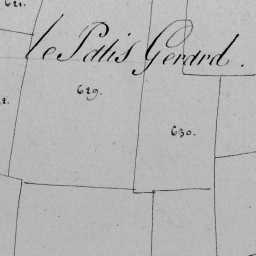 621.
le Patis Gerard.
629.
630.